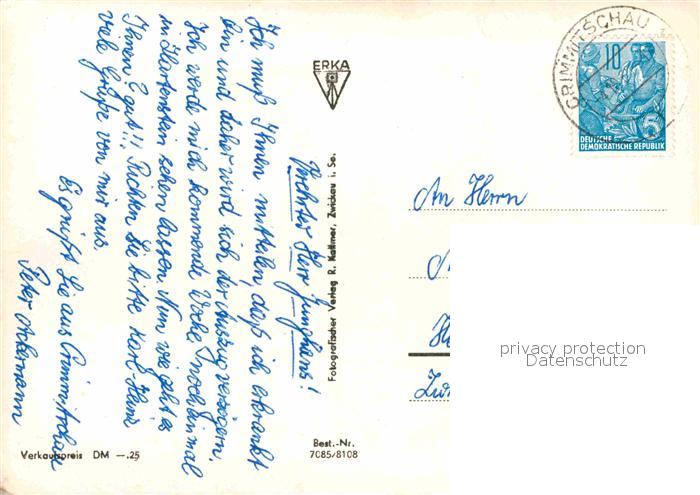 Verehrter Herr Junghans!
Ich muß Ihnen mitteilen, daß ich erkrankt
bin und daher wird sich der Auszug verzögern.
Ich werde mich kommende Woche, noch einmal
in Hartenstein sehen lassen. Nun wie geht es
Ihnen? gut!! Richten Sie bitte Karl-Heinz
viele Grüße von mir aus.
Es grüßt Sie aus Crimmitschau
Peter Ackermann
ERKA
Fotografischer Verlag R. Kallmer, Zwickau i. Sa.
Verkaufspreis DM —.25
Best.-Nr.
7085/8108
CRIMMITSCHAU
10
5
DEUTSCHE
DEMOKRATISCHE REPUBLIK
An Herrn
privacy protection
Datenschutz